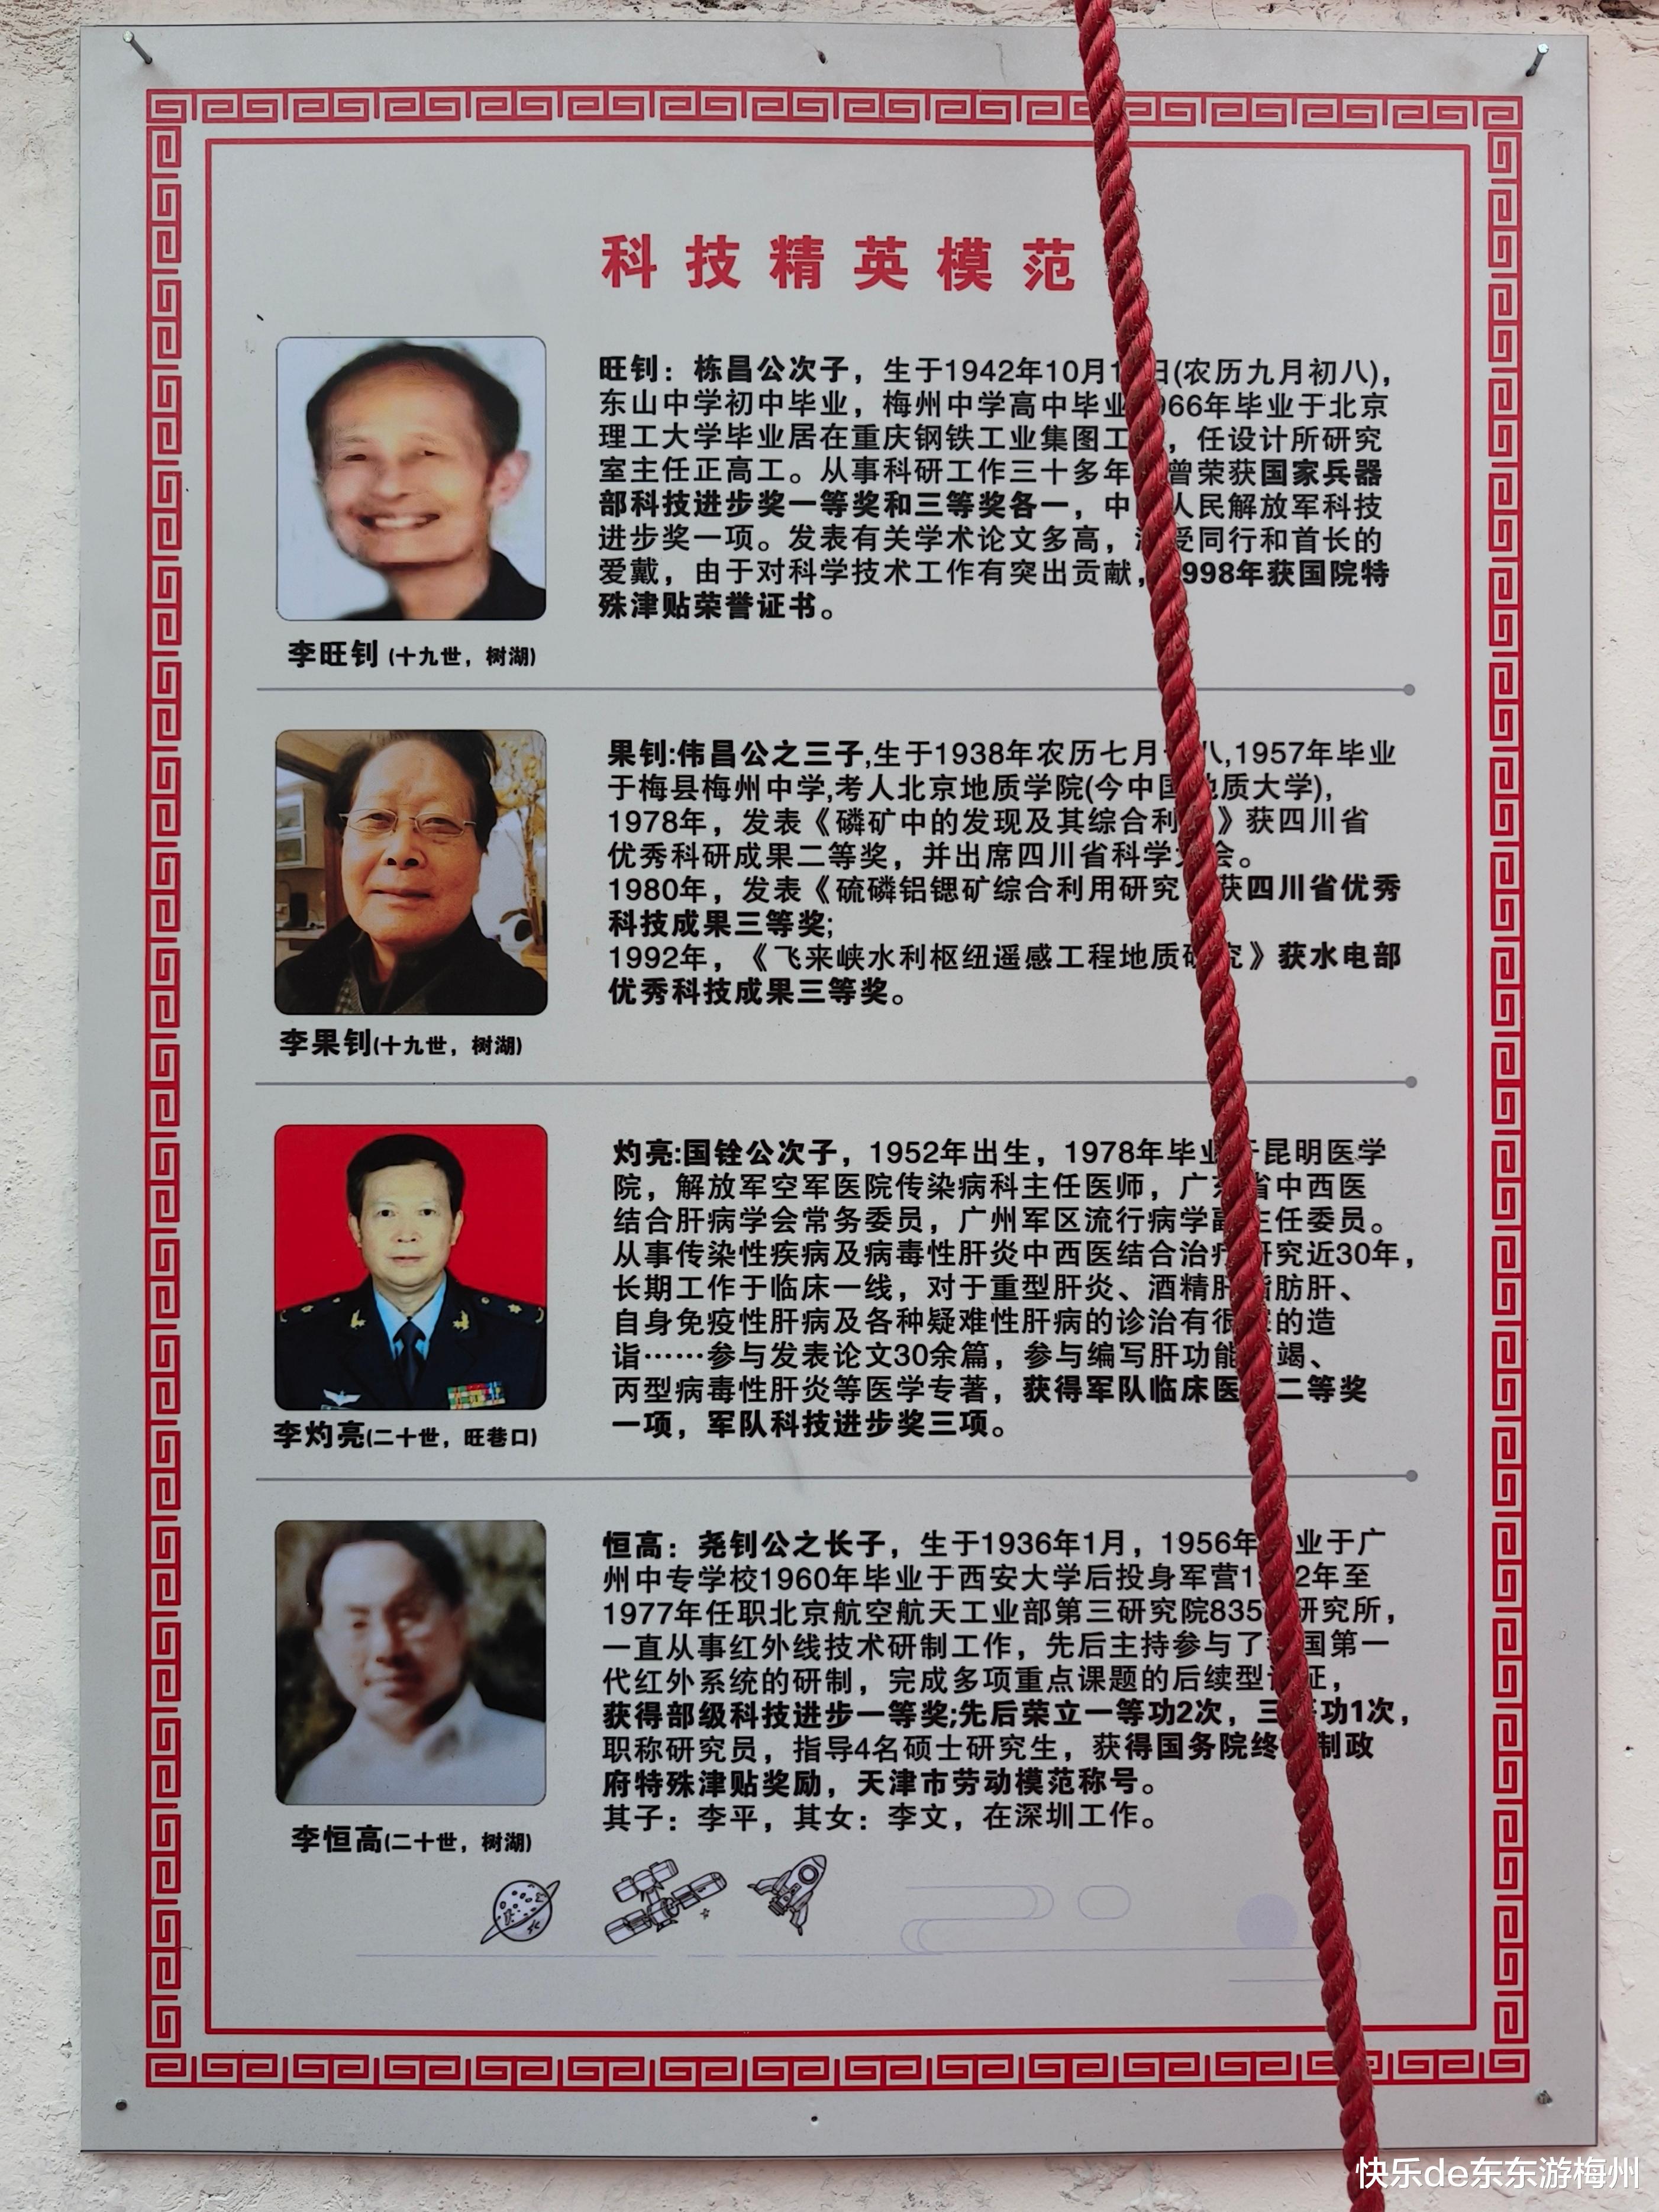 科技精英模范
旺钊：栋昌公次子，生于1942年10月1 日(农历九月初八)，
东山中学初中毕业，梅州中学高中毕业 966年毕业于北京
理工大学毕业居在重庆钢铁工业集图工 ，任设计所研究
室主任正高工。从事科研工作三十多年 曾荣获国家兵器
部科技进步奖一等奖和三等奖各一，中 人民解放军科技
进步奖一项。发表有关学术论文多高， 受同行和首长的
爱戴，由于对科学技术工作有突出贡献， 998年获国院特
殊津贴荣誉证书。
李旺钊 (十九世，树湖)
果钊:伟昌公之三子,生于1938年农历七月 八,1957年毕业
于梅县梅州中学,考人北京地质学院(今中国地质大学)，
1978年，发表《磷矿中的发现及其综合利 》获四川省
优秀科研成果二等奖，并出席四川省科学大会。
1980年，发表《硫磷铝锶矿综合利用研究 获四川省优秀
科技成果三等奖;
1992年，《飞来峡水利枢纽遥感工程地质研究》获水电部
优秀科技成果三等奖。
李果钊(十九世，树湖)
灼亮:国铨公次子，1952年出生，1978年毕业于昆明医学
院，解放军空军医院传染病科主任医师，广东省中西医
结合肝病学会常务委员，广州军区流行病学副主任委员。
从事传染性疾病及病毒性肝炎中西医结合治疗研究近30年，
长期工作于临床一线，对于重型肝炎、酒精肝 脂肪肝、
自身免疫性肝病及各种疑难性肝病的诊治有很 的造
诣……参与发表论文30余篇，参与编写肝功能 竭、
丙型病毒性肝炎等医学专著，获得军队临床医 二等奖
一项，军队科技进步奖三项。
李灼亮(二十世，旺巷口)
恒高：尧钊公之长子，生于1936年1月，1956年 业于广
州中专学校1960年毕业于西安大学后投身军营1 2年至
1977年任职北京航空航天工业部第三研究院835 研究所，
一直从事红外线技术研制工作，先后主持参与了 国第一
代红外系统的研制，完成多项重点课题的后续型 证，
获得部级科技进步一等奖;先后荣立一等功2次，三等功1次，
职称研究员，指导4名硕士研究生，获得国务院终 制政
府特殊津贴奖励，天津市劳动模范称号。
其子：李平，其女：李文，在深圳工作。
李恒高(二十世，树湖)
快乐de东东游梅州